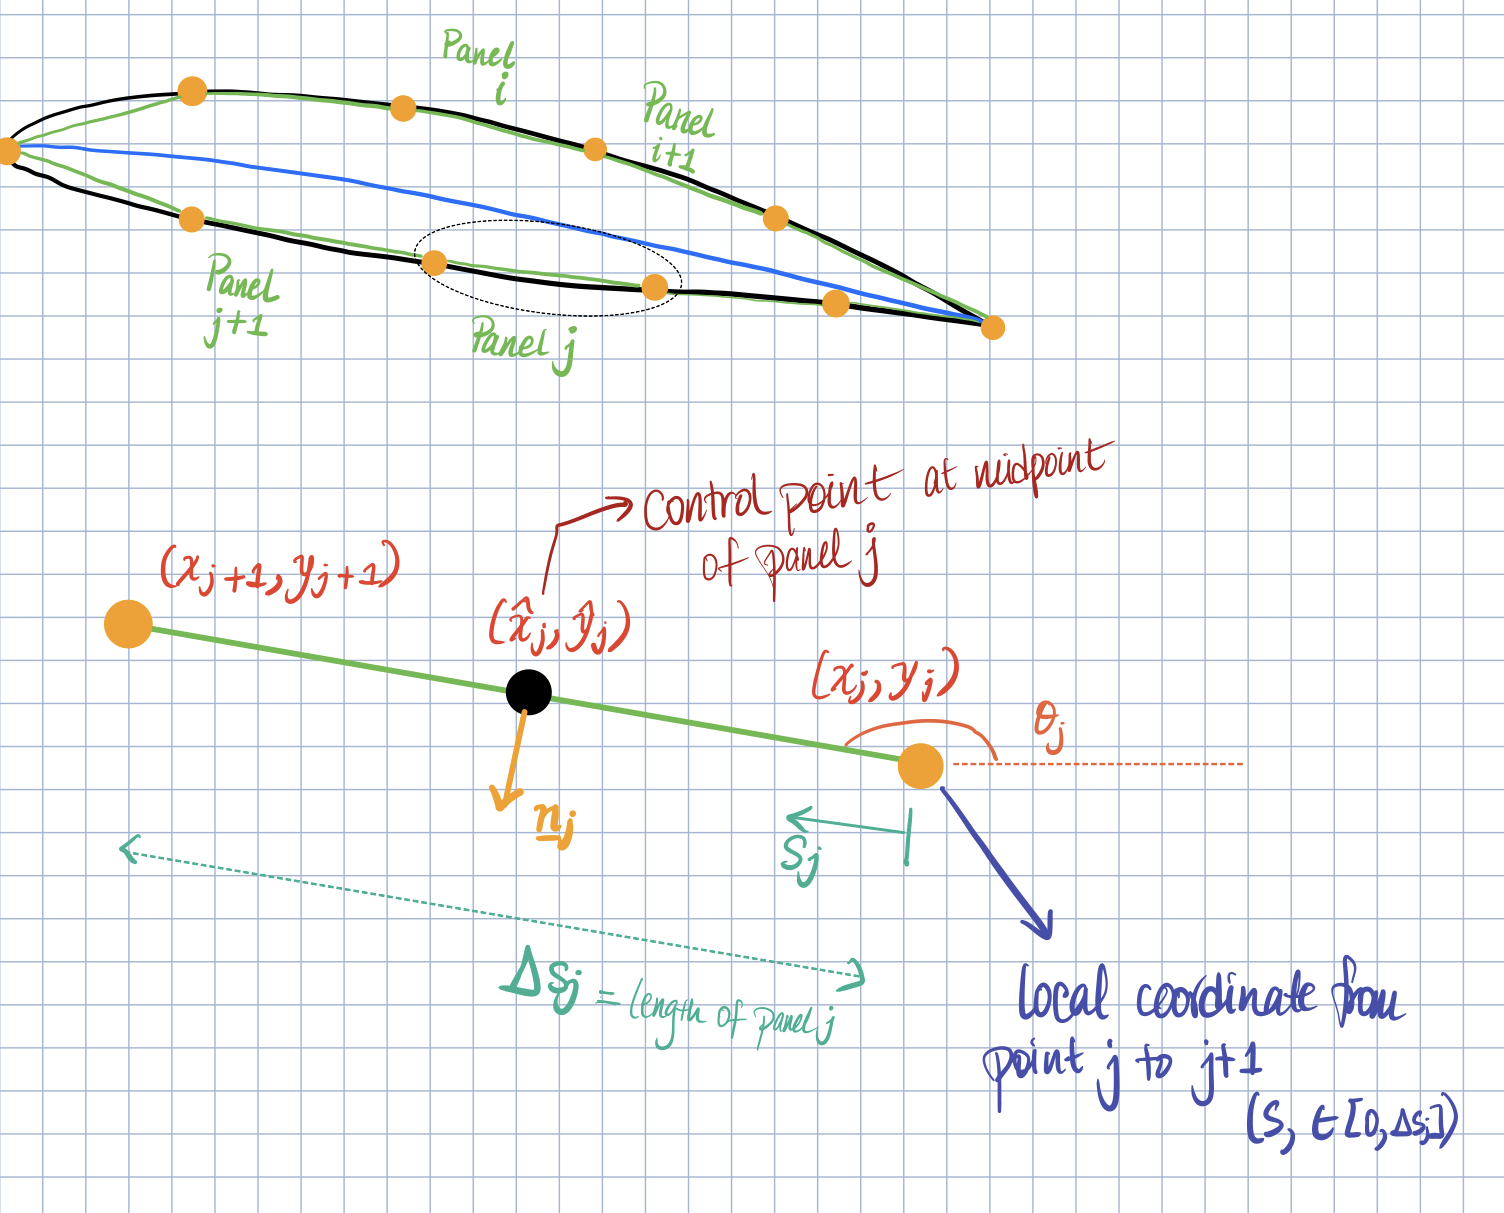 Panel
i
Panel
i+1
Panel
j+1
Panel j
Control point at midpoint
of panel j
(x_{j+1}, y_{j+1})
(x̂_j, ŷ_j)
(x_j, y_j)
θ_j
n_j
S_j
ΔS_j = length of panel j
local coordinate from
point j to j+1
(S, ∈ [0, ΔS_j])